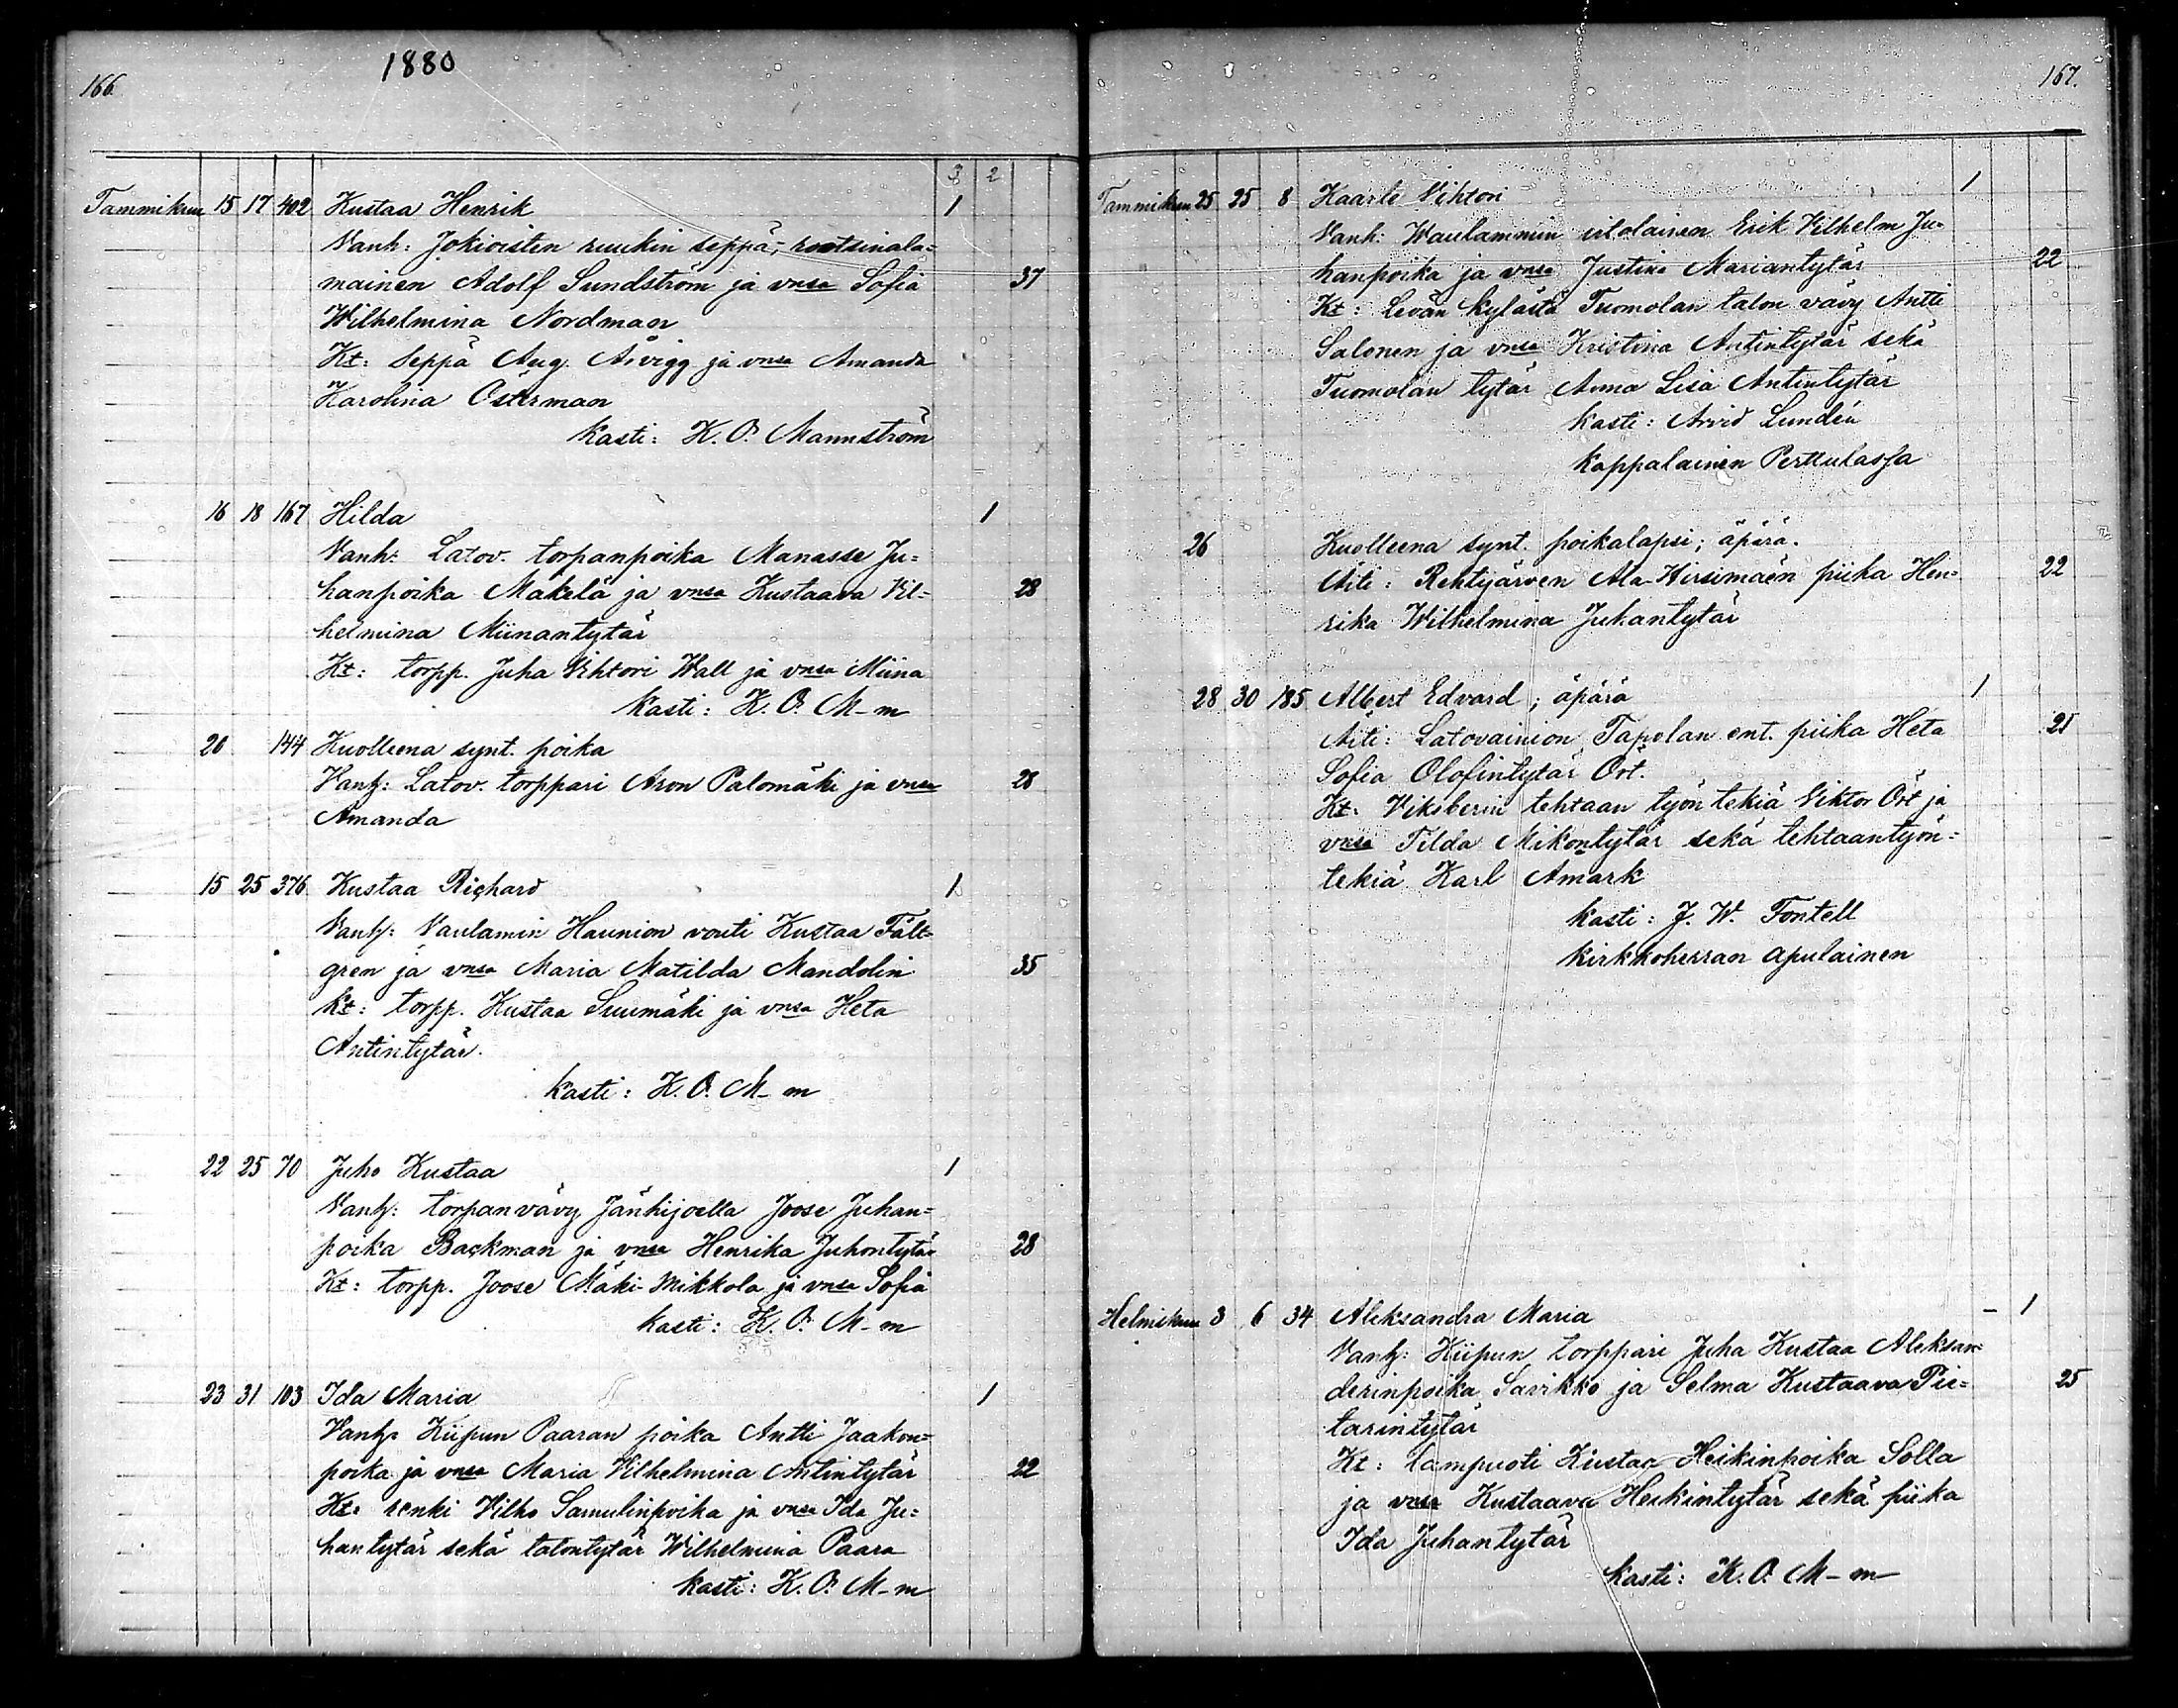 1880
166
3 2
Tammikuu 15 17 402 Kustaa Henrik 1
Vanh: Jokioisten ruukin seppä, ruotsinala=
mainen Adolf Sundström ja vnsa Sofia 37
Wilhelmina Nordman
Kt: Seppä Aug. Arvigg ja vnsa Amanda
Karolina Österman
Kasti: K. O. Mannström
16 18 167 Hilda 1
Vanh: Latov. torpanpoika Manasse Ju=
hanpoika Mäkelä ja vnsa Kustaava Vil= 28
helmina Miinantytär
Kt: torpp. Juha Vihtori Wall ja vnsa Miina
Kasti: K. O. M-m
20 144 Kuolleena synt. poika
Vanh: Latov. torppari Aron Palomäki ja vnsa 28
Amanda
15 25 376 Kustaa Richard 1
Vanh: Vaulamin Haunion vouti Kustaa Fält=
gren ja vnsa Maria Matilda Mandolin 35
Kt: torpp. Kustaa Suumäki ja vnsa Heta
Antintytär.
Kasti: K. O. M-m
22 25 70 Juho Kustaa 1
Vanh: torpanvävy Jänhijoella Joose Juhan=
poika Backman ja vnsa Henrika Juhontytär 28
Kt: torpp. Joose Mäki-Mikkola ja vnsa Sofia
Kasti: K. O. M-m
23 31 103 Ida Maria 1
Vanh: Kiipun Paaran poika Antti Jaakon=
poika ja vnsa Maria Vilhelmina Antintytär 22
Kt: renki Vilho Samulinpoika ja vnsa Ida Ju=
hantytär sekä talontytär Wilhelmina Paara
Kasti: K. O. M-m
167.
Tammikuu 25 25 8 Kaarlo Vihtori 1
Vanh: Waulammin itolainen Erik Vilhelm Ju=
hanpoika ja vnsa Justina Mariantytär 22
Kt: Levän kylästä Tuomolan talon vävy Antti
Salonen ja vnsa Kristina Antintytär sekä
Tuomolan tytär Anna Lisa Antintytär
Kasti: Arvid Lundén
Kappalainen Perttulassa
26 Kuolleena synt. poikalapsi; äpärä.
Äiti: Rehtijärven Ala-Hirsimäen piika Hen= 22
rika Wilhelmina Juhantytär
28 30 185 Albert Edvard; äpärä 1
Äiti: Latovainion Tapolan ent. piika Heta 21
Sofia Olofintytär Ört.
Kt: Viksberin tehtaan työn tekiä Viktor Ört ja
vnsa Tilda Mikontytär sekä tehtaantyön=
tekiä Karl Amark
Kasti: J. W. Fontell
Kirkkoherran apulainen
Helmikuu 3 6 34 Aleksandra Maria - 1
Vanh: Kiipun torppari Juha Kustaa Aleksan=
derinpoika Savikko ja Selma Kustaava Pie= 25
tarintytär
Kt: Lampuoti Kustaa Heikinpoika Solla
ja vnsa Kustaava Heikintytär sekä piika
Ida Juhantytär
Kasti: K. O. M-m